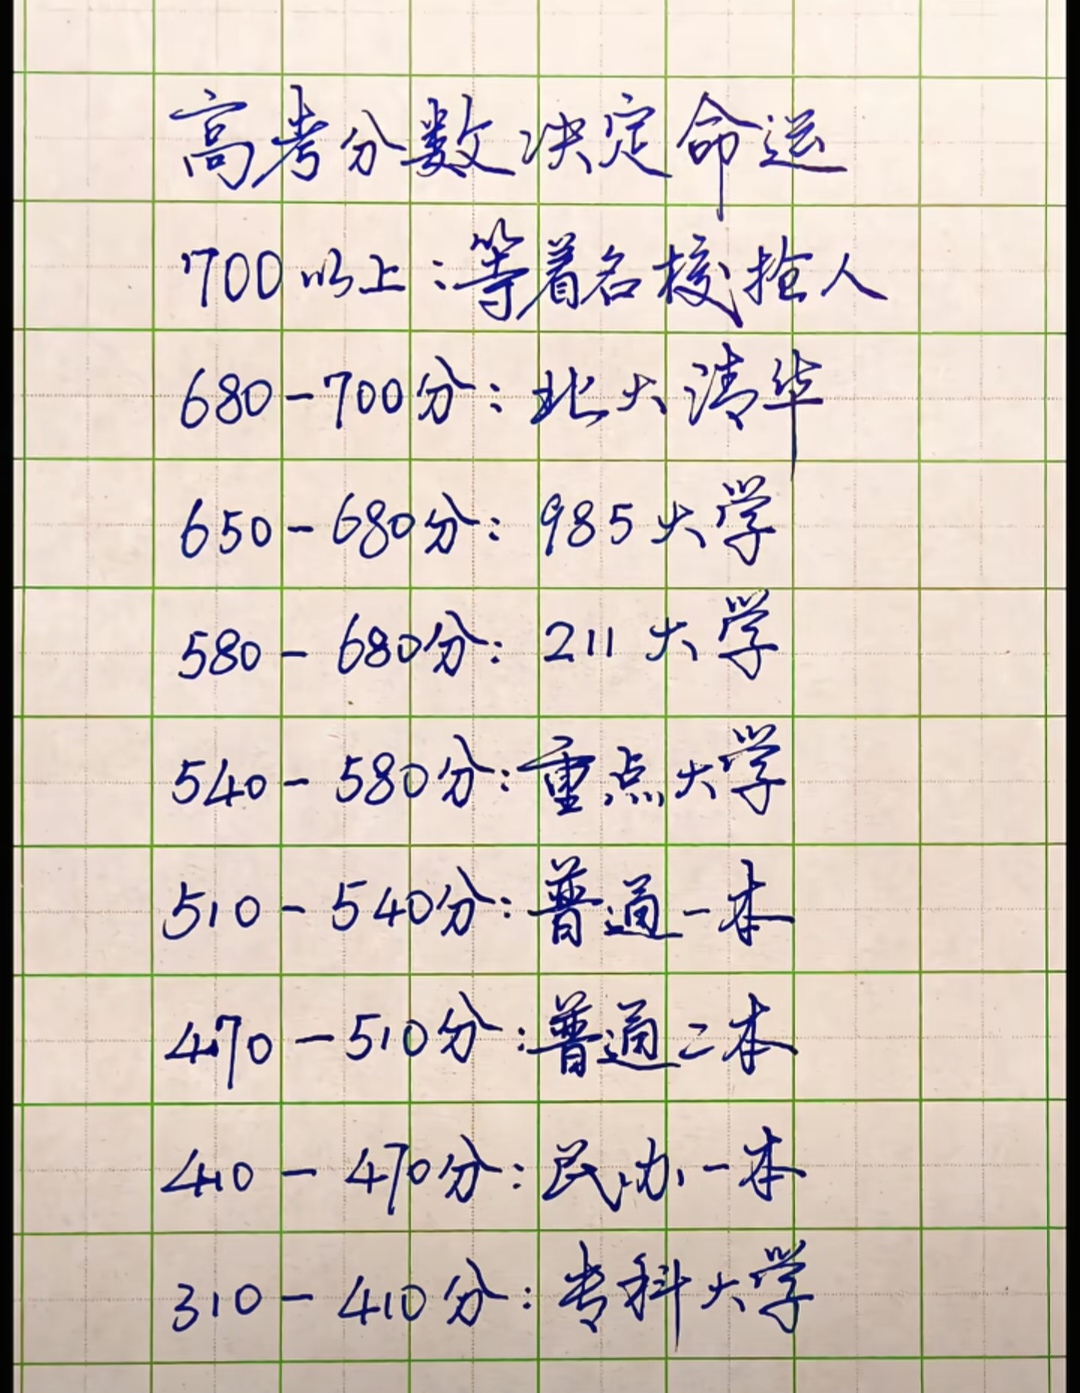 高考分数决定命运
700以上:等着名校抢人
680-700分:北大清华
650-680分:985大学
580-680分:211大学
540-580分:重点大学
510-540分:普通一本
470-510分:普通二本
410-470分:民办一本
310-410分:专科大学